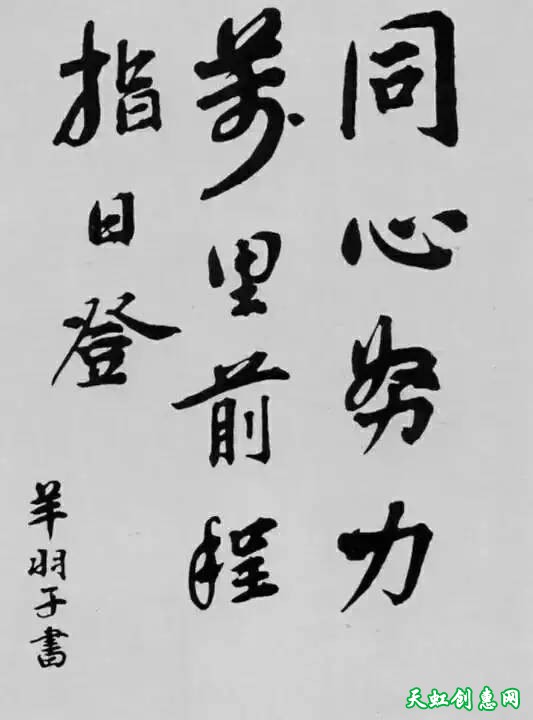 同心努力
萬里前程
指日登
羊羽子書
天虹创惠网